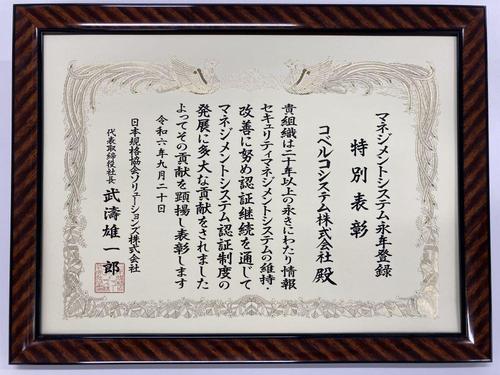 マネジメントシステム永年登録
特別表彰
コベルコシステム株式会社 殿
貴組織は二十年以上の永きにわたり情報
セキュリティマネジメントシステムの維持・
改善に努め認証継続を通じて
マネジメントシステム認証制度の
発展に多大な貢献をされました
よってその貢献を顕揚し表彰します
令和六年九月二十日
日本規格協会ソリューションズ株式会社
代表取締役社長 武濤雄一郎